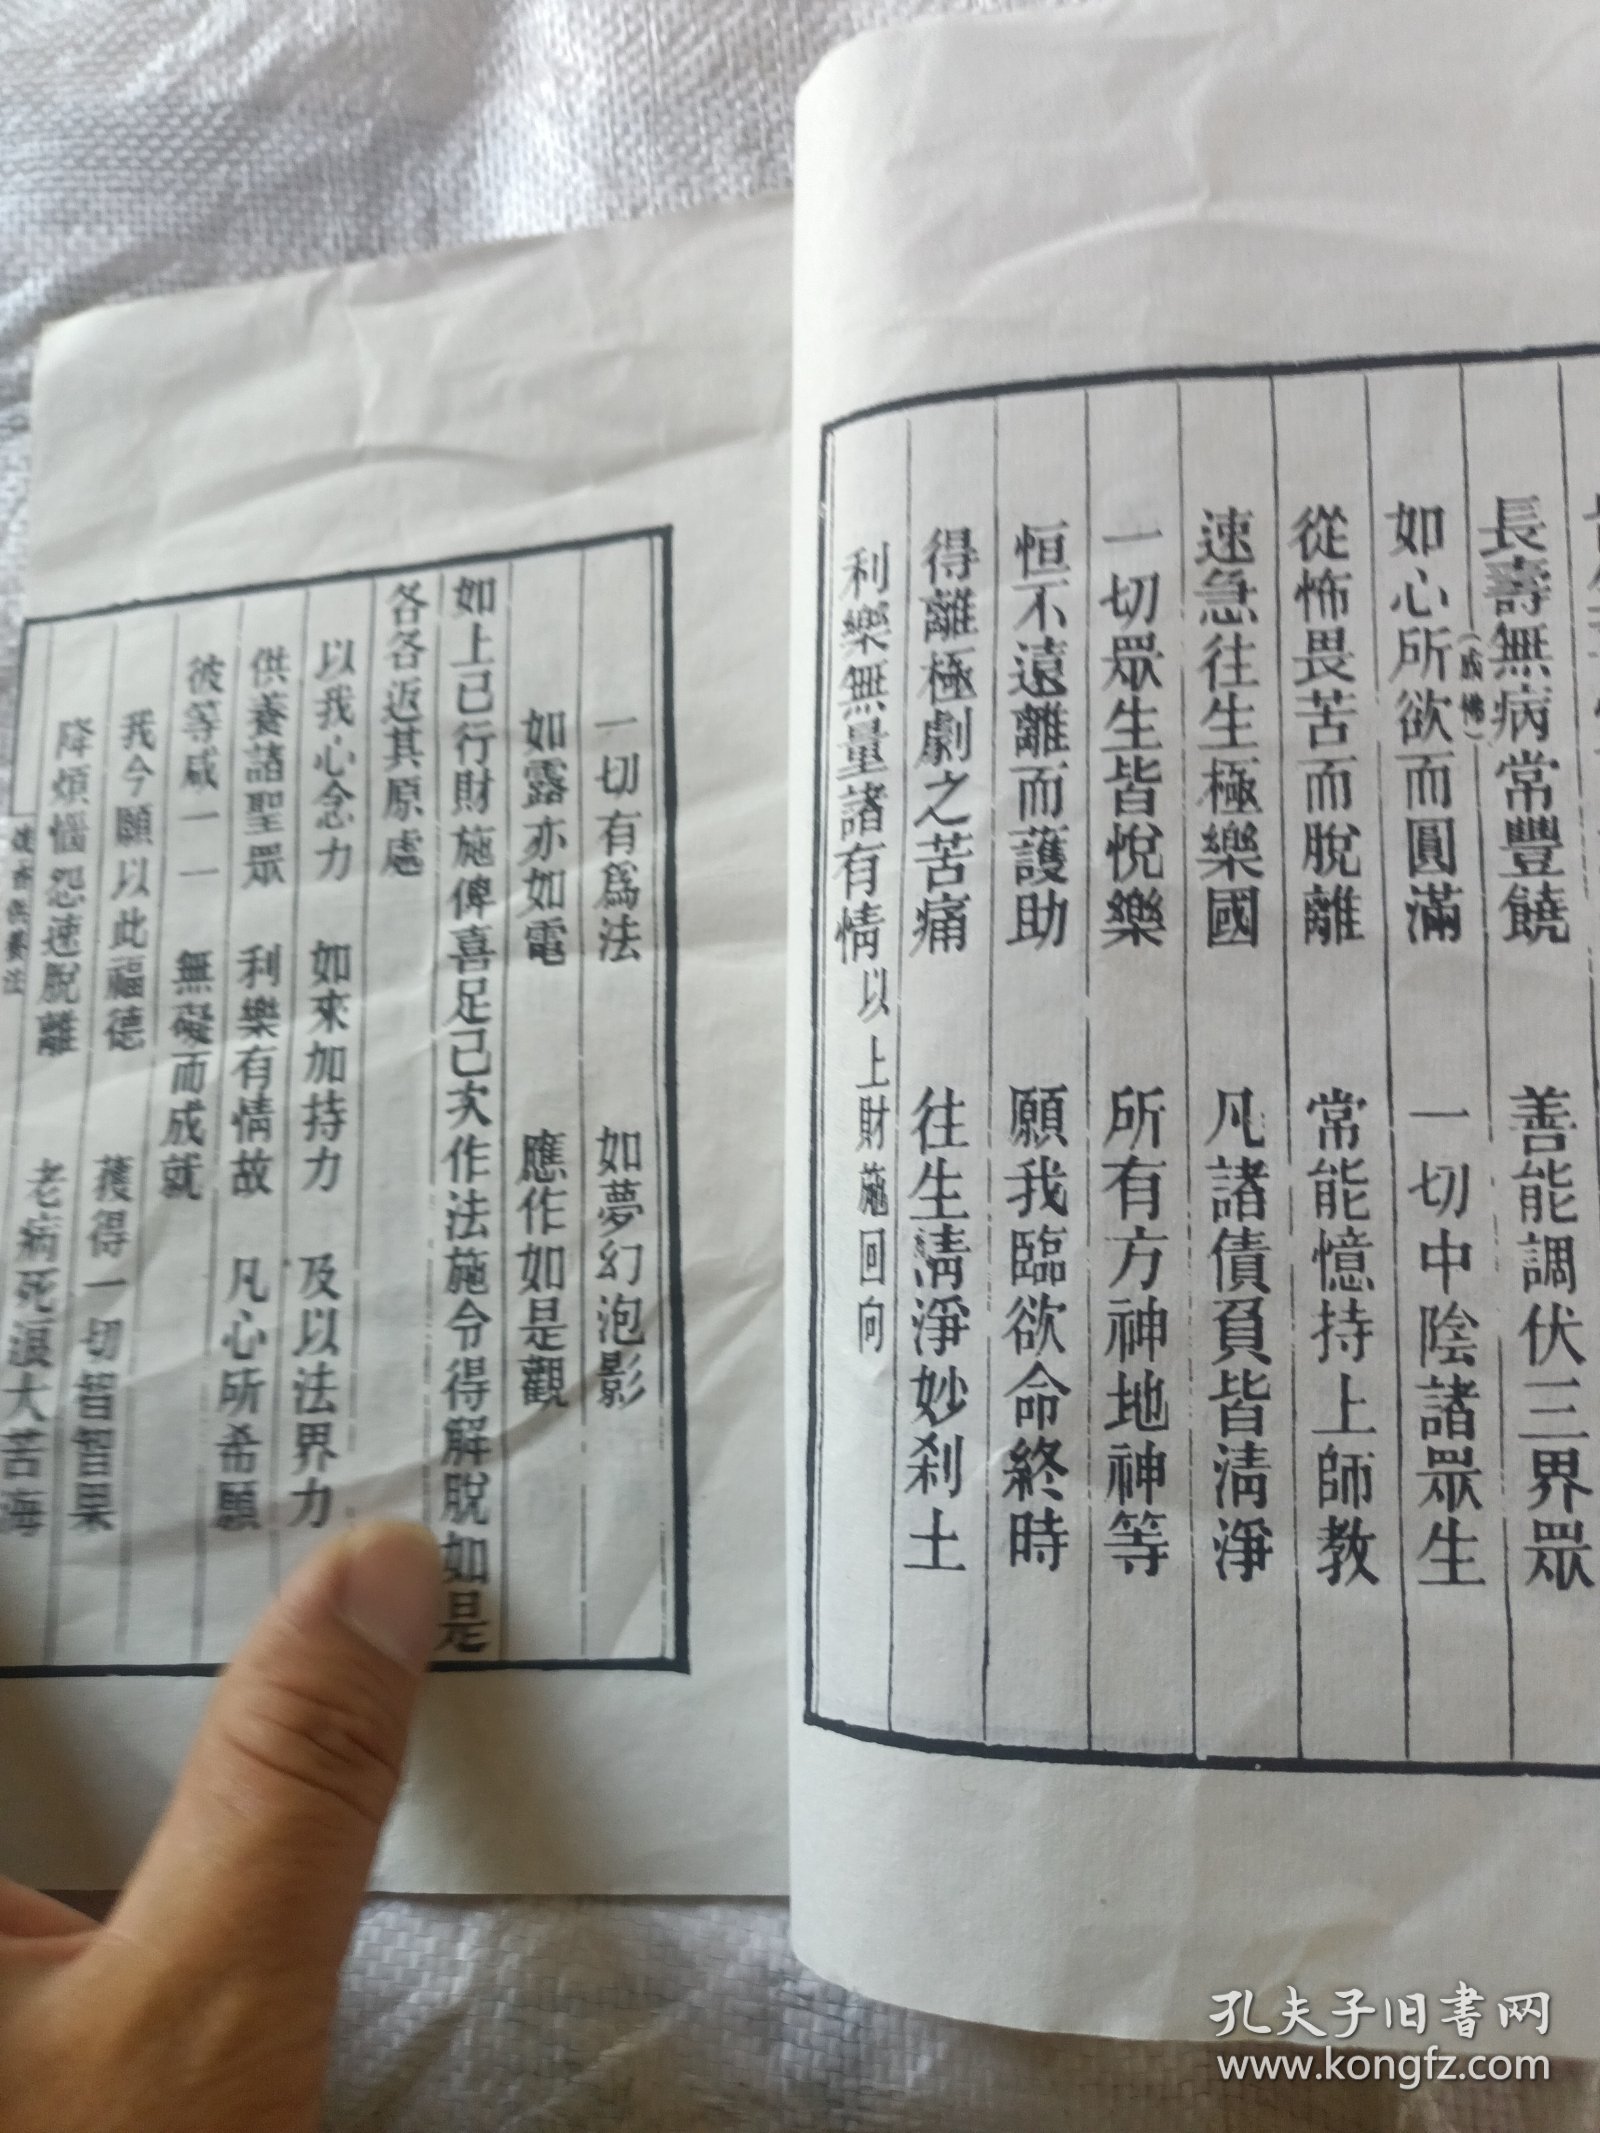 長壽無病常豐饒　善能調伏三界眾
(成佛)
如心所欲而圓滿　一切中陰諸眾生
從怖畏苦而脫離　常能憶持上師教
速急往生極樂國　凡諸債負皆清淨
一切眾生皆悅樂　所有方神地神等
恒不遠離而護助　願我臨欲命終時
得離極劇之苦痛　往生清淨妙刹土
利樂無量諸有情以上財施回向
一切有爲法　如夢幻泡影
如露亦如電　應作如是觀
如上已行財施俾喜足已次作法施令得解脫如是
各各返其原處
以我心念力　如來加持力　及以法界力
供養諸聖眾　利樂有情故　凡心所希願
彼等咸一一　無礙而成就
我今願以此福德　獲得一切智智果
降煩惱怨速脫離　老病死浪大苦海
燒香供養法
孔夫子旧書网
www.kongfz.com